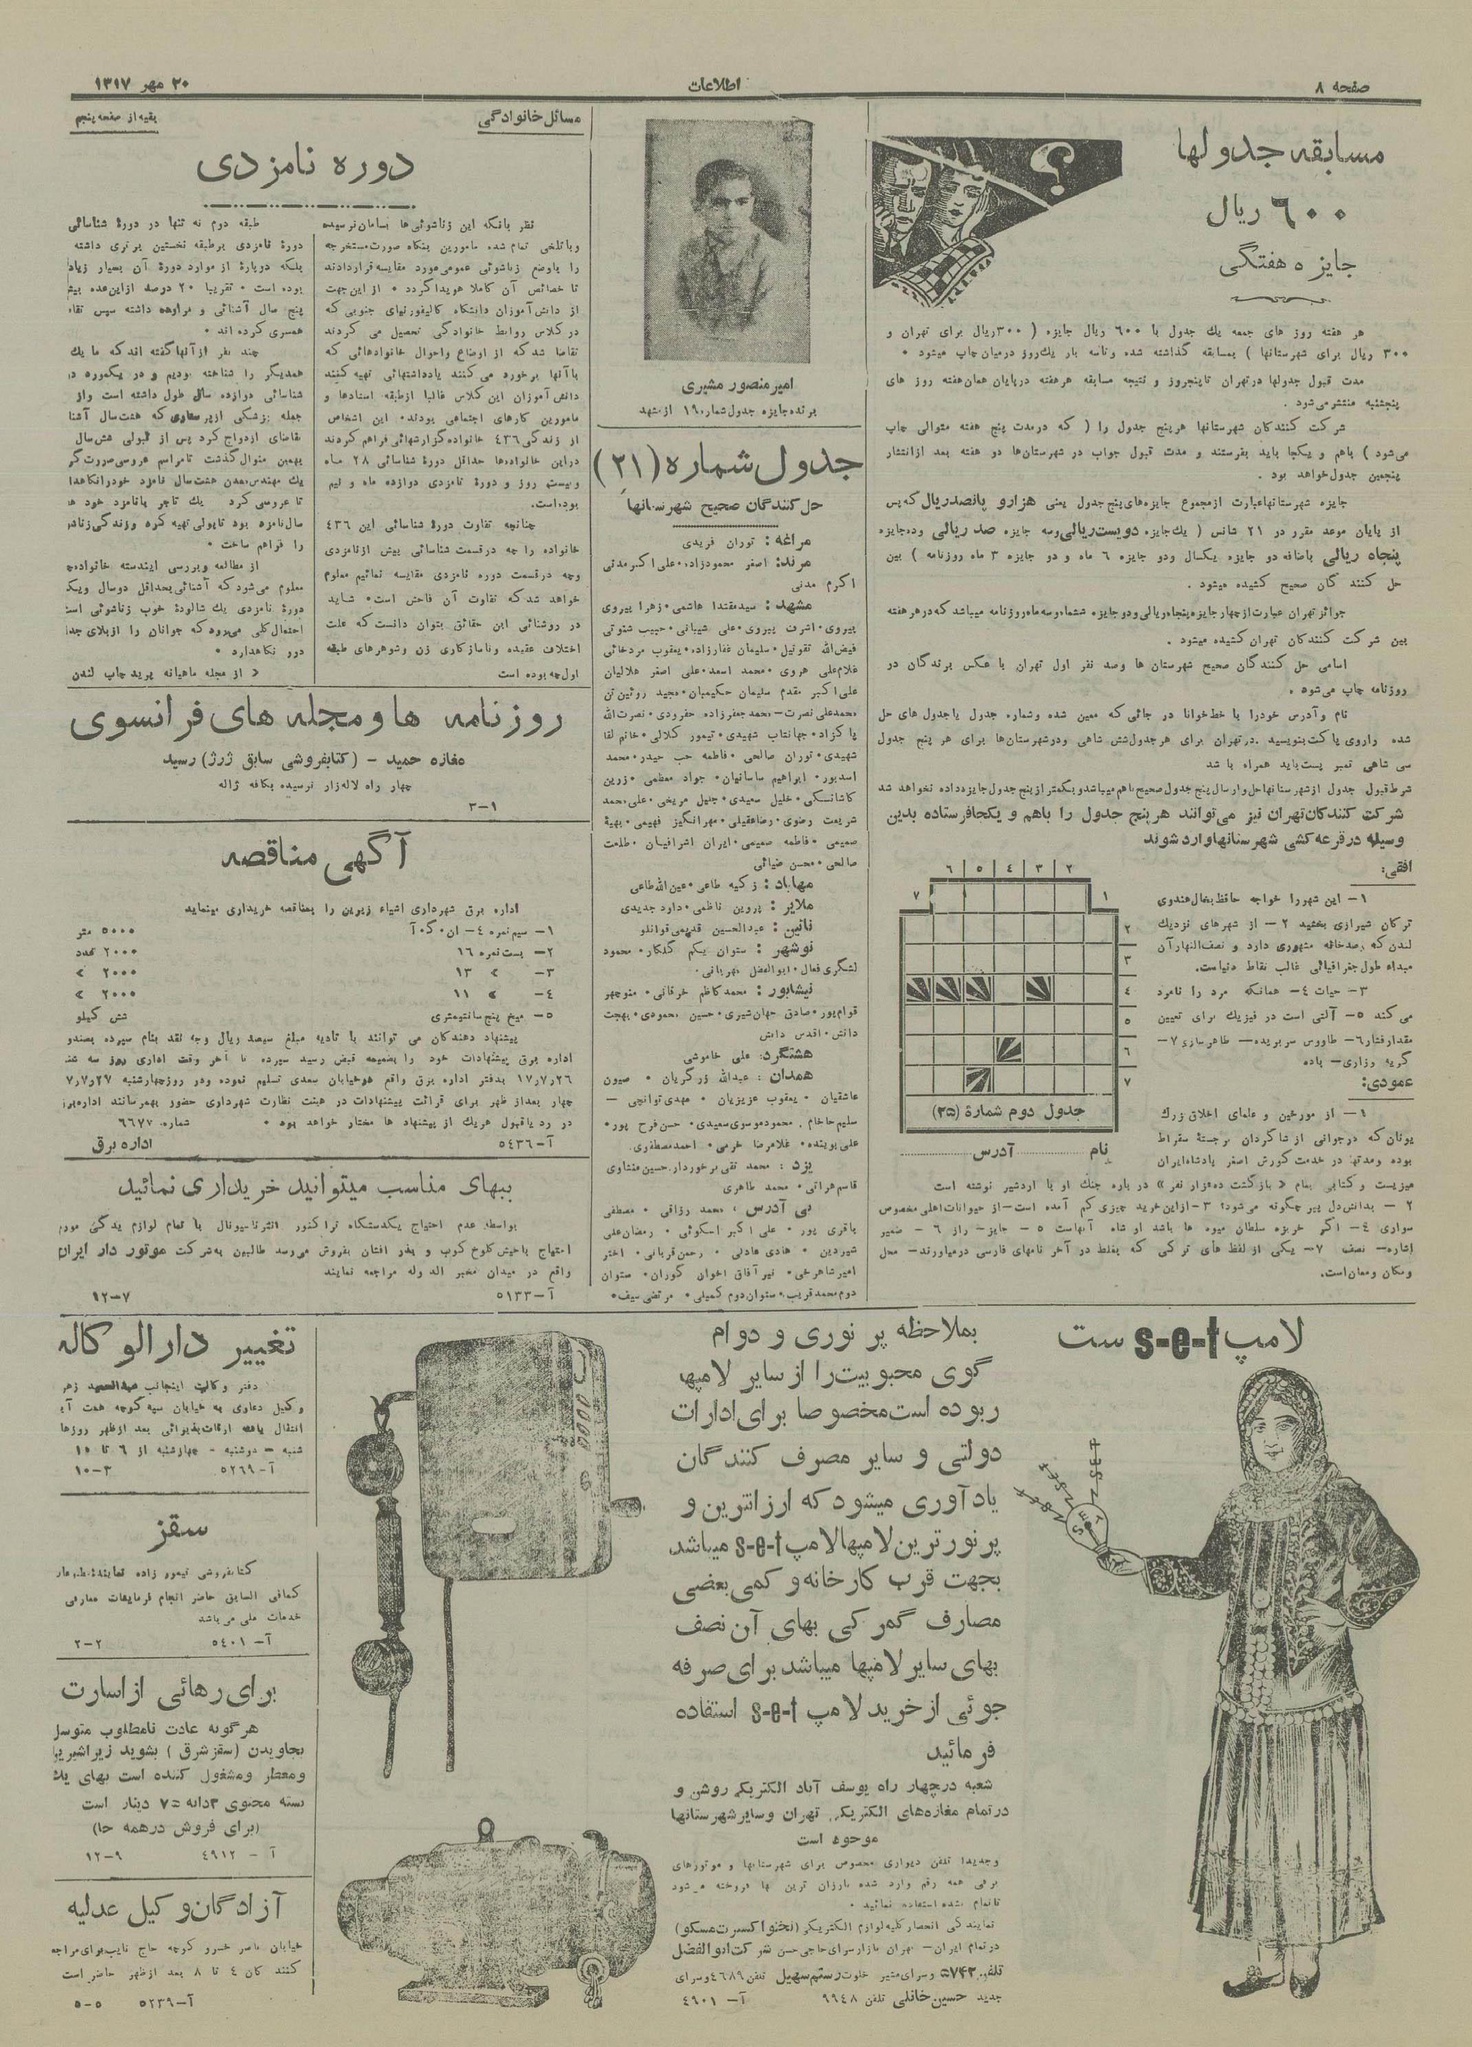 صفحه ۸
اطلاعات
۲۰ مهر ۱۳۱۷
مسابقه جدولها
۶۰۰ ریال
جایزه هفتگی
هر هفته روز های جمعه یك جدول با ۶۰۰ ریال جایزه ( ۳۰۰ ریال برای تهران و
۳۰۰ ریال برای شهرستانها ) بمسابقه گذاشته شده وتاسه بار یك‌روز درمیان چاپ میشود •
مدت قبول جدولها درتهران تا پنجروز و نتیجه مسابقه هرهفته درپایان همان‌هفته روز های
پنجشنبه منتشر می‌شود .
شرکت کنندگان شهرستانها هر پنج جدول را ( که درمدت پنج هفته متوالی چاپ
می‌شود ) باهم و یکجا باید بفرستند و مدت قبول جواب در شهرستان‌ها دو هفته بعد ازانتشار
پنجمین جدول‌خواهد بود .
جایزه شهرستانها عبارت ازمجموع جایزه‌های‌پنج‌جدول یعنی هزارو پانصدریال که‌پس
از پایان موعد مقرر دو ۲۱ شانس ( یك‌جایزه دویست‌ریالی‌وسه جایزه صد ریالی وده‌جایزه
پنجاه ریالی باضافه دو جایزه یکسال ودو جایزه ۶ ماه و دو جایزه ۳ ماه روزنامه ) بین
حل کنند گان صحیح کشیده میشود .
جوائز تهران عبارت ازچهار جایزه‌پنجاه‌ریالی‌ودوجایزه ششماه‌وسه‌ماه‌روزنامه میباشد که‌در هر هفته
بین شرکت کنندکان تهران کشیده میشود .
اسامی حل کنندگان صحیح شهرستان ها وصد نفر اول تهران با عکس برندگان در
روزنامه چاپ می‌شود .
نام وآدرس خودرا با خط‌خوانا در جائی که معین شده وشماره جدول یاجدول های حل
شده راروی پاکت‌بنویسید . درتهران برای هرجدول‌شش شاهی ودرشهرستان‌ها برای هر پنج جدول
سی شاهی تمبر پست‌باید همراه با شد
شرط‌قبول جدول ازشهرستانهاحل‌وارسال‌پنج‌جدول‌صحیح‌باهم‌میباشدوبکمتر ازپنج‌جدول‌جایزه‌داده نخواهد شد
شرکت کنندکان‌تهران نیز می‌توانند هر پنج جدول را باهم و یکجافرستاده بدین
وسیله درقرعه‌کشی شهرستانهاوارد شوند
افقی:
۱- این شهررا خواجه حافظ‌بخال‌هندوی
ترکان شیرازی بخشید ۲- از شهرهای نزدیك
لندن که رصدخانه مشهوری دارد و نصف‌النهارآن
مبداء طول‌جغرافیائی غالب نقاط دنیاست.
۳- حیات ۴- همانکه مرد را نامرد
می کند ۵- آلتی است در فیزیك برای تعیین
مقدارفشار ۶- طاووس سر بریده— ظاهرسازی ۷-
گریه وزاری— پاده
عمودی:
۱- از مورخین و علمای اخلاق بزرك
یونان که درجوانی از شاگردان برجستۀ سقراط
بوده ومدتها در خدمت کورش اصغر پادشاه‌ایران
میزیست و کتابی بنام « بازگشت ده‌هزار نفر» در باره جنك او با اردشیر نوشته است
۲ - بدانش‌دل پیر چگونه می‌شود؟ ۳- ازاین‌خرید چیزی‌کم آمده است—از حیوانات‌اهلی‌مخصوص
سواری ۴- اگر خربزه سلطان میوه ها باشد او شاه آنهاست ۵ - جایز— راز ۶ - ضمیر
اشاره— نصف ۷- یکی از لفظ های ترکی که بغلط در آخر نامهای فارسی درمیآورند— محل
ومکان ومعان‌است.
۱ ۲ ۳ ۴ ۵ ۶ ۷
۲
۳
۴
۵
۶
۷
جدول دوم شمارۀ (۲۵)
نام آدرس
امیرمنصور مشیری
برنده‌جایزه جدول‌شماره ۱۹ ازمشهد
جدول شماره (۲۱)
حل‌کنندگان صحیح شهرستانها
مراغه: توران فریدی
مرند: اصغر محمودزاده، علی‌اکبر مدنی
اکرم مدنی
مشهد: سیدمقتدا هاشمی، زهرا پیروی
پیروی، اشرف پیروی، علی شیبانی، حبیب شنوتی
غلام‌علی هروی • محمد اسعد، علی اصغر هلالیان
علی‌اکبر مقدم سلیمان حکیمیان، مجید روئین‌تن
محمدعلی نصرت— محمد جعفرزاده حقرودی، نصرت‌الله
پاکزاد، جهانتاب شهیدی، تیمور کلالی، خانم لقا
شهیدی، توران صالحی، فاطمه حب حیدر، محمد
اسدپور، ابراهیم ساسانیان، جواد معظمی، زرین
کاشانسکی، خلیل سعیدی، جلیل مریخی، علی‌محمد
شریعت رضوی، رضاعقیلی، مهرانگیز فهیمی، بهیۀ
صمیمی، فاطمه صمیمی، ایران اشرافیان، طلعت
صالحی، محسن ضیائی
مهاباد: زکیه طاعی، عین‌الله‌طاعی
ملایر: پروین ناظمی، داود جدیدی
نائین: عبدالحسین قدیمی‌قوانلو
نوشهر: ستوان یکم گلکار، محمود
لشگری‌فعال، ابوالفضل تهرانی.
نیشابور: محمدکاظم خرقانی، منوچهر
قوام‌پور، صادق جهان‌شیری، حسین محمودی، بهجت
دانش، اقدس دانش
هشتگرد: علی خاموشی
همدان: عبدالله زرگریان • صیون
عاشقیان - یعقوب عزیزیان • مهدی‌توانچی —
سلیم‌حاخام، محمودموسوی‌سعیدی، حسن‌فرح پور،
علی‌پوینده، غلامرضا خرمی، احمدمصطفوی
یزد: محمد تقی برخوردار، حسین‌منشاوی
قاسم‌هراتی، محمد طاهری
بی آدرس: محمد رزاقی، مصطفی
باقری پور، علی‌اکبر اسکوئی، رمضان‌علی
شیردین • هادی عادلی • رحمن‌قربانی • اختر
امیرشاهرخی، نیرآفاق اخوان کوران، ستوان
دوم‌محمدقریب، ستوان‌دوم کمیلی، مرتضی سیف
مسائل خانوادگی
بقیه از صفحه پنجم
دوره نامزدی
نظر بانکه این زناشوئی‌ها بسامان نرسیده
وباتلخی تمام شده مامورین بنگاه صورت‌مستخرجه
را باوضع زناشوئی عمومی‌مورد مقایسه قراردادند
تا خصائص آن کاملا هویدا گردد • ازاین‌جهت
از دانش‌آموزان دانشگاه کالیفورنیای جنوبی که
درکلاس روابط خانوادگی تحصیل می کردند
تقاضا شدکه از اوضاع واحوال خانوادهائی که
باآنها برخورد می‌کنند یادداشتهائی تهیه کنند
دانش‌آموزان این کلاس غالبا ازطبقه استادها و
مامورین کارهای اجتماعی بودند، این اشخاص
از زندگی ۴۳۶ خانواده‌گزارشهائی فراهم کردند
دراین خانواده‌ها حداقل دورۀ شناسائی ۲۸ ماه
وبیست روز و دورۀ نامزدی دوازده ماه و نیم
بوده‌است.
چنانچه تفاوت دورۀ شناسائی این ۴۳۶
خانواده را چه درقسمت شناسائی پیش ازنامزدی
وچه درقسمت دوره نامزدی مقایسه نمائیم معلوم
خواهد شدکه تفاوت آن فاحش است • شاید
در روشنائی این حقائق بتوان دانست‌که علت
اختلاف عقیده وناسازکاری زن وشوهرهای طبقه
اول‌چه بوده است
طبقه دوم نه تنها در دورۀ شناسائی
دورۀ نامزدی برطبقه نخستین برتری داشته
بلکه دوپارۀ از موارد دورۀ آن بسیار زیاد
بوده است • تقریبا ۲۰ درصد ازاین‌عده بیش
پنج سال آشنائی و مراوده داشته سپس
همسری کرده اند •
چند نفر ازآنهاگفته اندکه ما یك
همدیگر را شناخته بودیم و در یکمورد
شناسائی دوازده سال طول داشته است
جمله پزشکی ازپرستاری که هشت‌سال آشنا
تقاضای ازدواج کرد پس از قبولی شش‌سال
بهمین منوال‌گذشت تامراسم عروسی‌صورت‌گر
یك مهندس‌معدن هشت‌سال نامزد خودرانگاهدا
تا عروسی کرد یك تاجر بانامزد خود
سال‌نامزد بود تاپولی تهیه کرد وزندگی‌زناش
را فراهم ساخت •
از مطالعه وبررسی
معلوم می‌شودکه آشنائی‌بحداقل دوسال ویک
دورۀ نامزدی یك شالودۀ خوب زناشوئی است
احتمال‌کلی می‌رودکه جوانان را ازبلای جدا
دور نگاهدارد •
« از مجله ماهیانه پرید چاپ لندن
روزنامه ها و مجله های فرانسوی
مغازه حمید — (کتابفروشی سابق ژرژ) رسید
چهار راه لاله‌زار نرسیده بکافه ژاله
۳-۱
آگهی مناقصه
اداره برق شهرداری اشیاء زیرین را بمناقصه خریداری مینماید
۱- سیم‌نمره ۴- ان• گ• آ ۵۰۰۰ متر
۲- بست‌نمره ۱۶ ۲۰۰۰ عدد
۳- » ۱۳ ۲۰۰۰ »
۴- » ۱۱ ۲۰۰۰ »
۵- میخ پنج‌سانتیمتری شش کیلو
پیشنهاد دهندکان می توانند با تادیه مبلغ سیصد ریال وجه نقد بنام سپرده بصندو
اداره برق پیشنهادات خود را بضمیمه قبض رسید سپرده تا آخر وقت اداری روز سه شنـ
۱۷٫۷٫۲۶ بدفتر اداره برق واقع درخیابان سعدی تسلیم نموده ودر روزچهارشنبه ۲۷٫۷
چهار بعداز ظهر برای قرائت پیشنهادات در هیئت نظارت شهرداری حضور بهمرسانند اداره‌بر
در رد یاقبول هریك از پیشنهاد ها مختار خواهد بود • شماره ۶۶۷۷
آ-۵۴۳۶ اداره برق
ببهای مناسب میتوانید خریداری نمائید
بواسطه عدم احتیاج یکدستگاه تراکتور انترناسیونال با تمام لوازم یدکی مورد
احتیاج باخیش‌کلوخ کوب و بذر افشان بفروش می‌رسد طالبین به‌شرکت موتور دار ایران
واقع در میدان مخبر الدوله مراجعه نمایند
آ-۵۱۳۳ ۱۲-۷
تغییر دارالوکاله
دفتر وکالت اینجانب عبدالحمید زهر
وکیل دعاوی به خیابان سپه کوچه هفت
انتقال یافته اوقات‌پذیرائی بعد ازظهر روزها
شنبه - دوشنبه - چهارشنبه از ۶ تا ۱۰
آ-۵۲۶۹ ۱۰-۳
سقز
کتابفروشی تیمور زاده
کمافی السابق حاضر انجام فرمایشات معارفی
خدمات ملی می‌باشد
آ-۵۴۰۱ ۲-۲
برای رهائی ازاسارت
هرگونه عادت نامطلوب متوسل
بجاویدن (سقزشرق ) بشوید زیراشیرین
ومعطر ومشغول کننده است بهای یك
بسته محتوی ۳دانه ۷۵ دینار است
(برای فروش درهمه جا)
آ - ۴۹۱۲ ۱۲-۹
آزادگان وکیل عدلیه
خیابان ناصر خسرو کوچه حاج نایب‌برای‌مراجعه
کنند کان ۴ تا ۸ بعد ازظهر حاضر است
آ-۵۲۳۹ ۵-۵
لامپ s-e-t ست
بملاحظه پر نوری و دوام
گوی محبوبیت‌را از سایر لامپها
ربوده است‌مخصوصا برای‌ادارات
دولتی و سایر مصرف کنندگان
یادآوری میشودکه ارزانترین و
پرنورترین لامپهالامپ s-e-t میباشد.
بجهت قرب کارخانه و کمی بعضی
مصارف گمرکی بهای آن نصف
بهای سایر لامپها میباشد برای صرفه
جوئی از خرید لامپ s-e-t استفاده
فرمائید
شعبه درچهار راه یوسف آباد الکتریکی روشن و
درتمام مغازه‌های الکتریکی تهران وسایرشهرستانها
موجود است
وجدیدا تلفن دیواری مخصوص برای شهرستانها و موتورهای
برقی همه رقم وارد شده بارزان ترین بها فروخته می‌شود
تاتمام نشده استفاده نمائید •
نمایندگی انحصار کلیه لوازم الکتریکی (تخنواکسپرت‌مسکو)
درتمام ایران— تهران بازار سرای حاجی‌حسن شرکت‌ابوالفضل
تلفن ۵۷۴۳ وسرای‌مشیر خلوت رستم‌سهیل تلفن ۴۶۸۹ وسرای
جدید حسین‌خانلی تلفن ۹۹۴۸ آ-۴۶۰۱
SET
SET
SET
SET